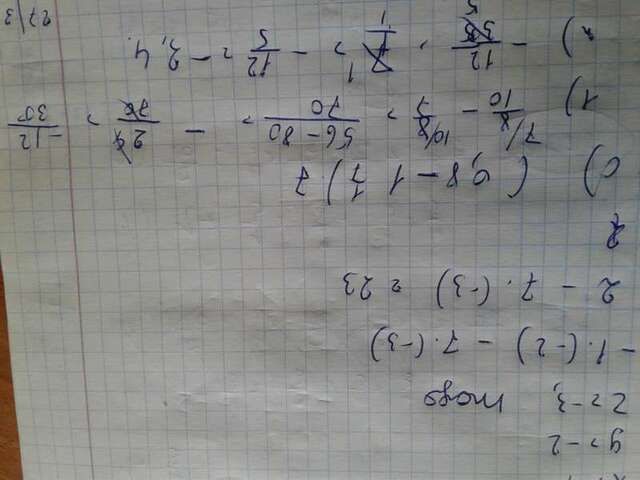 y = -2
z = -3, тогда
-1 · (-2) - 7 · (-3)
2 - 7 · (-3) = 23
б) ( 0,8 - 1 1/7 ) 7
1) 8/10 - 8/7 = 56 - 80 / 70 = - 24/70 = -12/35
2) - 12/35 · 7/1 = - 12/5 = - 2,4.
27\3